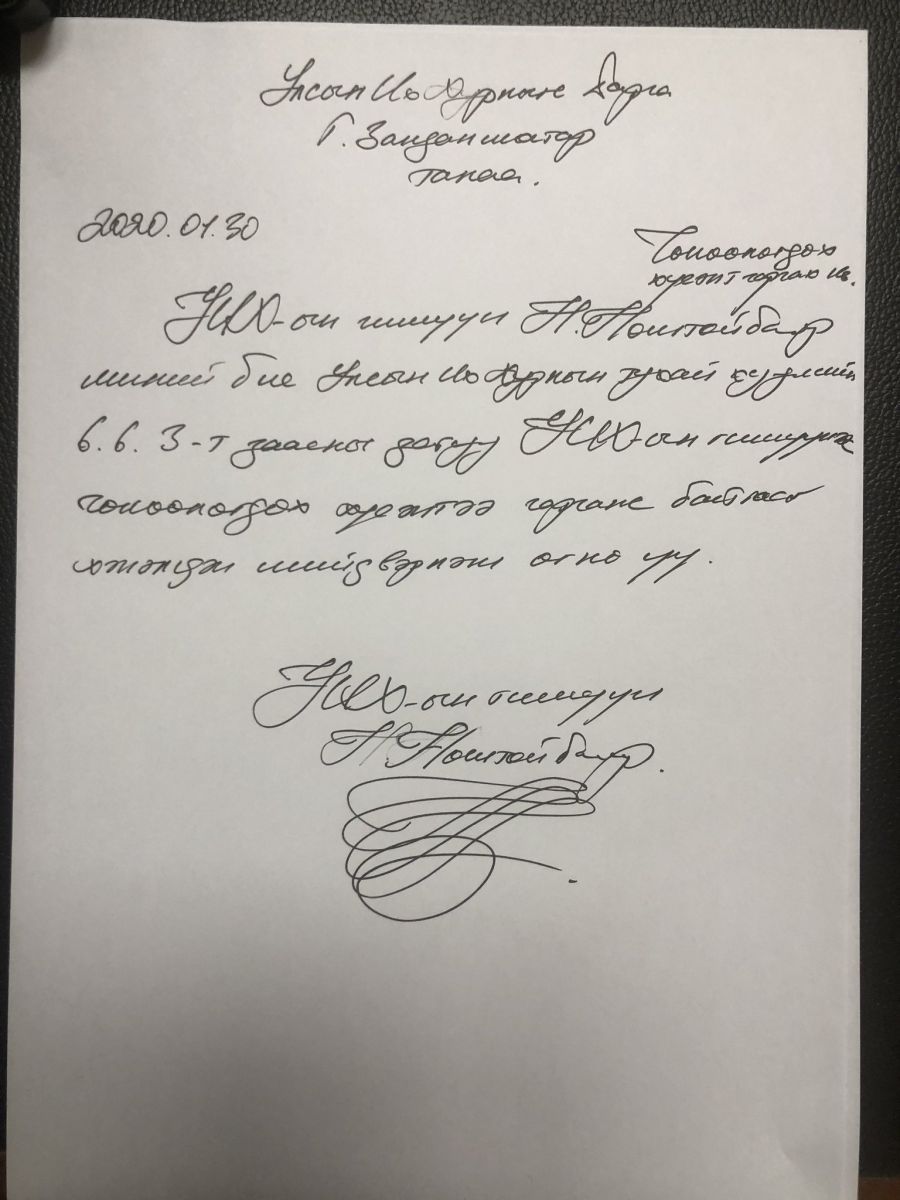 Улсын Их Хурлын Дарга
Г. Занданшатар
танаа.
2020.01.30
Чөлөөлөгдөх
хүсэлт гаргах нь.
УИХ-ын гишүүн Н. Номтойбаяр
миний бие Улсын Их Хурлын тухай хуулийн
6.6.3-т заасны дагуу УИХ-ын гишүүнээс
чөлөөлөгдөх хүсэлтээ гаргаж байгааг
хэлэлцэн шийдвэрлэж өгнө үү.
УИХ-ын гишүүн
Н. Номтойбаяр.